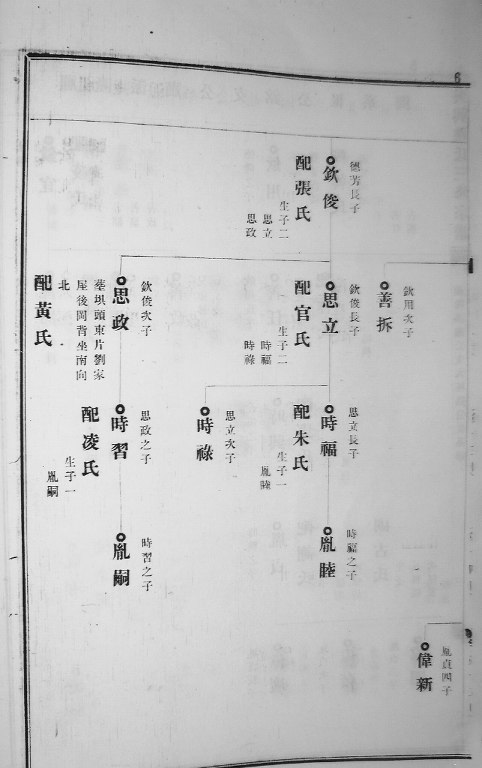 6
德芳長子
欽俊
配張氏
生子二
思立
思政
欽用次子
善拆
欽俊長子
思立
配官氏
生子二
時福
時祿
欽俊次子
思政
葬垻頭東片劉家
屋後岡背坐南向
北
配黃氏
思立長子
時福
配朱氏
生子一
胤睦
思立次子
時祿
思政之子
時習
配凌氏
生子一
胤嗣
時福之子
胤睦
時習之子
胤嗣
胤貞四子
偉新